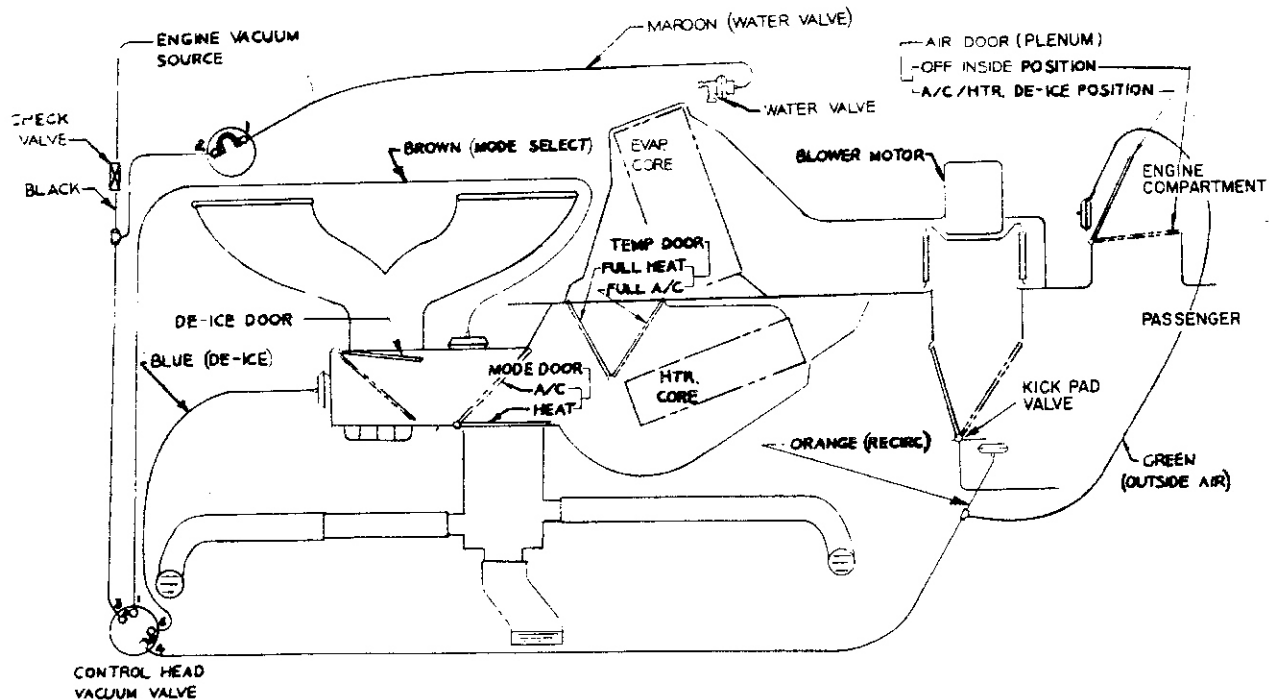 ENGINE VACUUM
SOURCE
MAROON (WATER VALVE)
AIR DOOR (PLENUM)
OFF INSIDE POSITION
A/C/HTR. DE-ICE POSITION
CHECK
VALVE
2
WATER VALVE
BROWN (MODE SELECT)
EVAP
CORE
BLOWER MOTOR
ENGINE
COMPARTMENT
BLACK
TEMP DOOR
FULL HEAT
FULL A/C
DE-ICE DOOR
PASSENGER
BLUE (DE-ICE)
MODE DOOR
A/C
HEAT
HTR.
CORE
KICK PAD
VALVE
ORANGE (RECIRC)
GREEN
(OUTSIDE AIR)
3
1
4
CONTROL HEAD
VACUUM VALVE